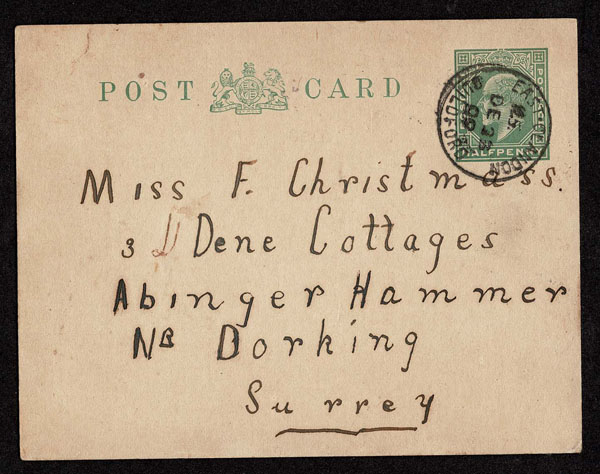 POST CARD
HALFPENNY
EAST
GUILDFORD
DE 23
09
Miss F. Christmass.
3 Dene Cottages
Abinger Hammer
NR Dorking
Surrey